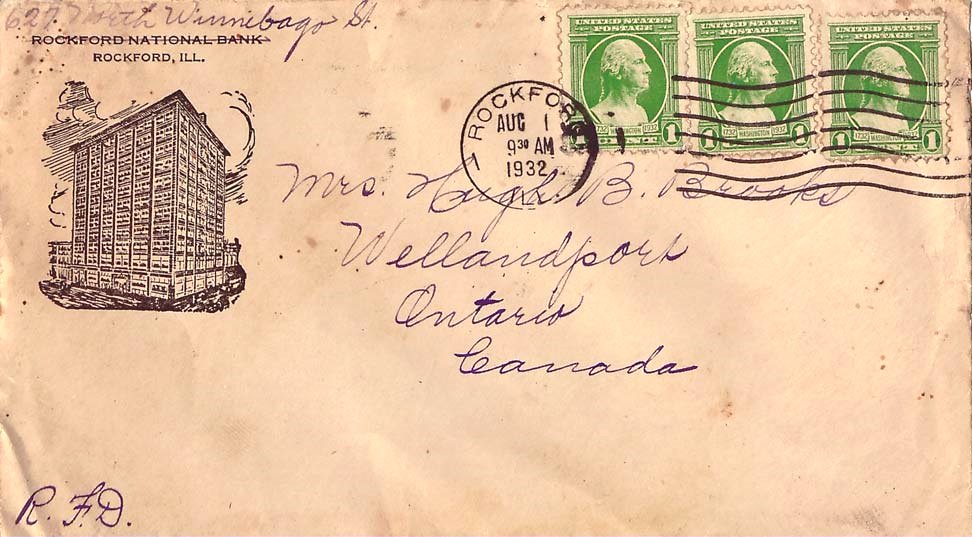 627 North Winnebago St.
ROCKFORD NATIONAL BANK
ROCKFORD, ILL.
UNITED STATES POSTAGE
1732 WASHINGTON 1932
1
UNITED STATES POSTAGE
1732 WASHINGTON 1932
1 1
UNITED STATES POSTAGE
1732 WASHINGTON 1932
1 1
ROCKFORD
AUG 1
9 30 AM
1932
ILL.
Mrs. Hugh. B. Brooks
Wellandport
Ontario
Canada
R. F. D.